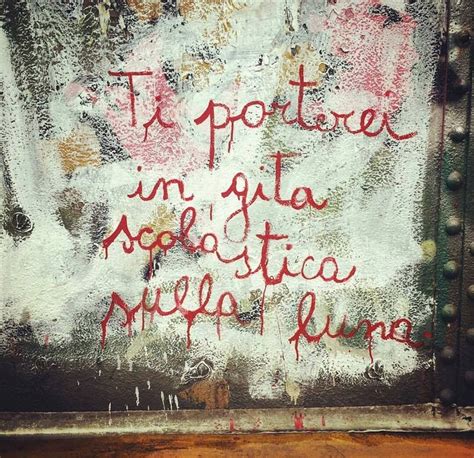 Ti porterei
in gita
scolastica
sulla luna.